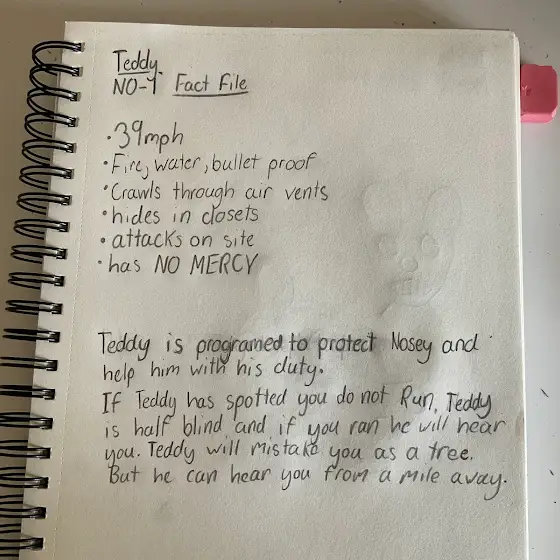 Teddy.
NO-1 Fact File
·39mph
·Fire, water, bullet proof
·Crawls through air vents
·hides in closets
·attacks on site
·has NO MERCY
Teddy is programed to protect Nosey and
help him with his duty.
If Teddy has spotted you do not Run, Teddy
is half blind and if you ran he will hear
you. Teddy will mistake you as a tree.
But he can hear you from a mile away.